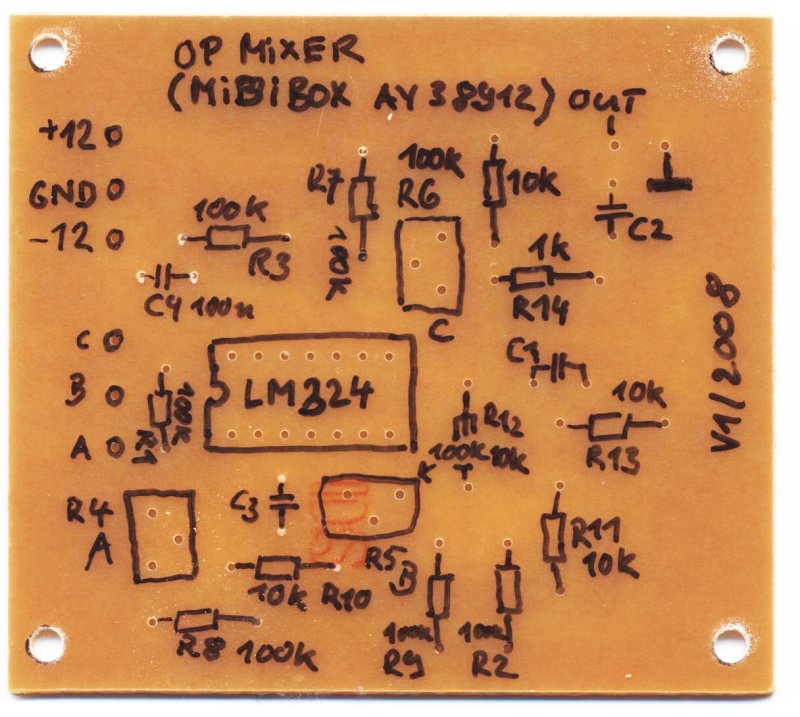 OP MiXER
(MiBiBOX AY38912) OUT
+12
GND
-12
R7
100k
R6
10k
100k
R3
C2
1k
R14
C4 100n
C
C1
C
B
A
LM324
R12
100k
10k
R13
V1/2008
R4
A
C3
K
R5
B
R11
10k
10k R10
R8 100k
100k
R9
100k
R2